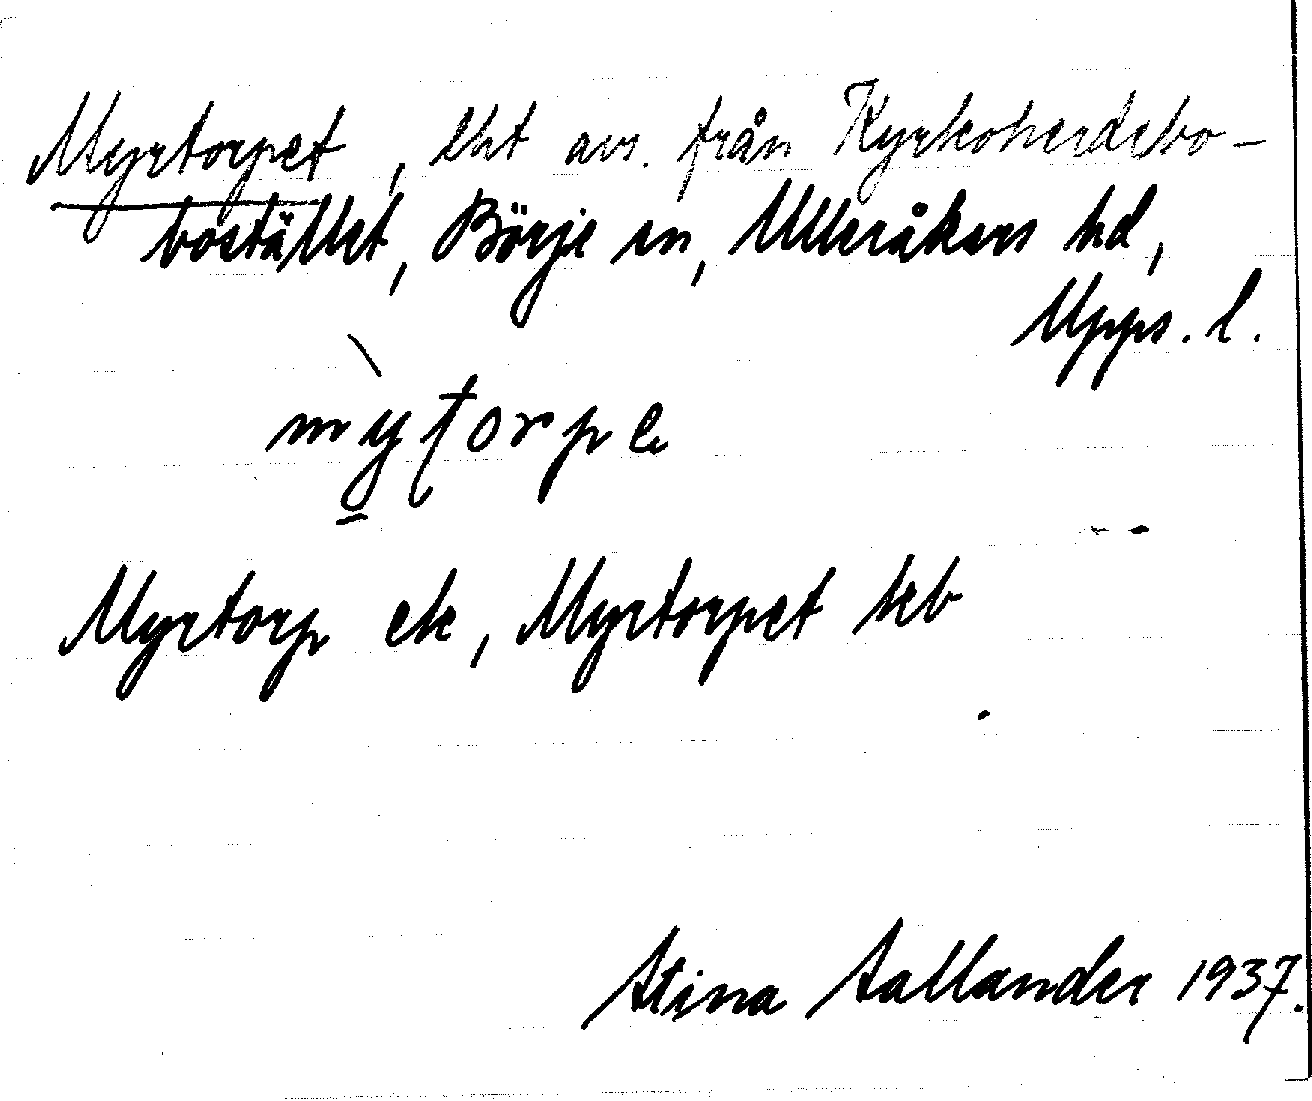 Myrtorpet, lht avs. från Kyrkoherdebo-
bostället, Börje sn, Ulleråkers hd,
Upps. l.
Myrtorp ek, Myrtorpet heb
Stina Sallander 1937.